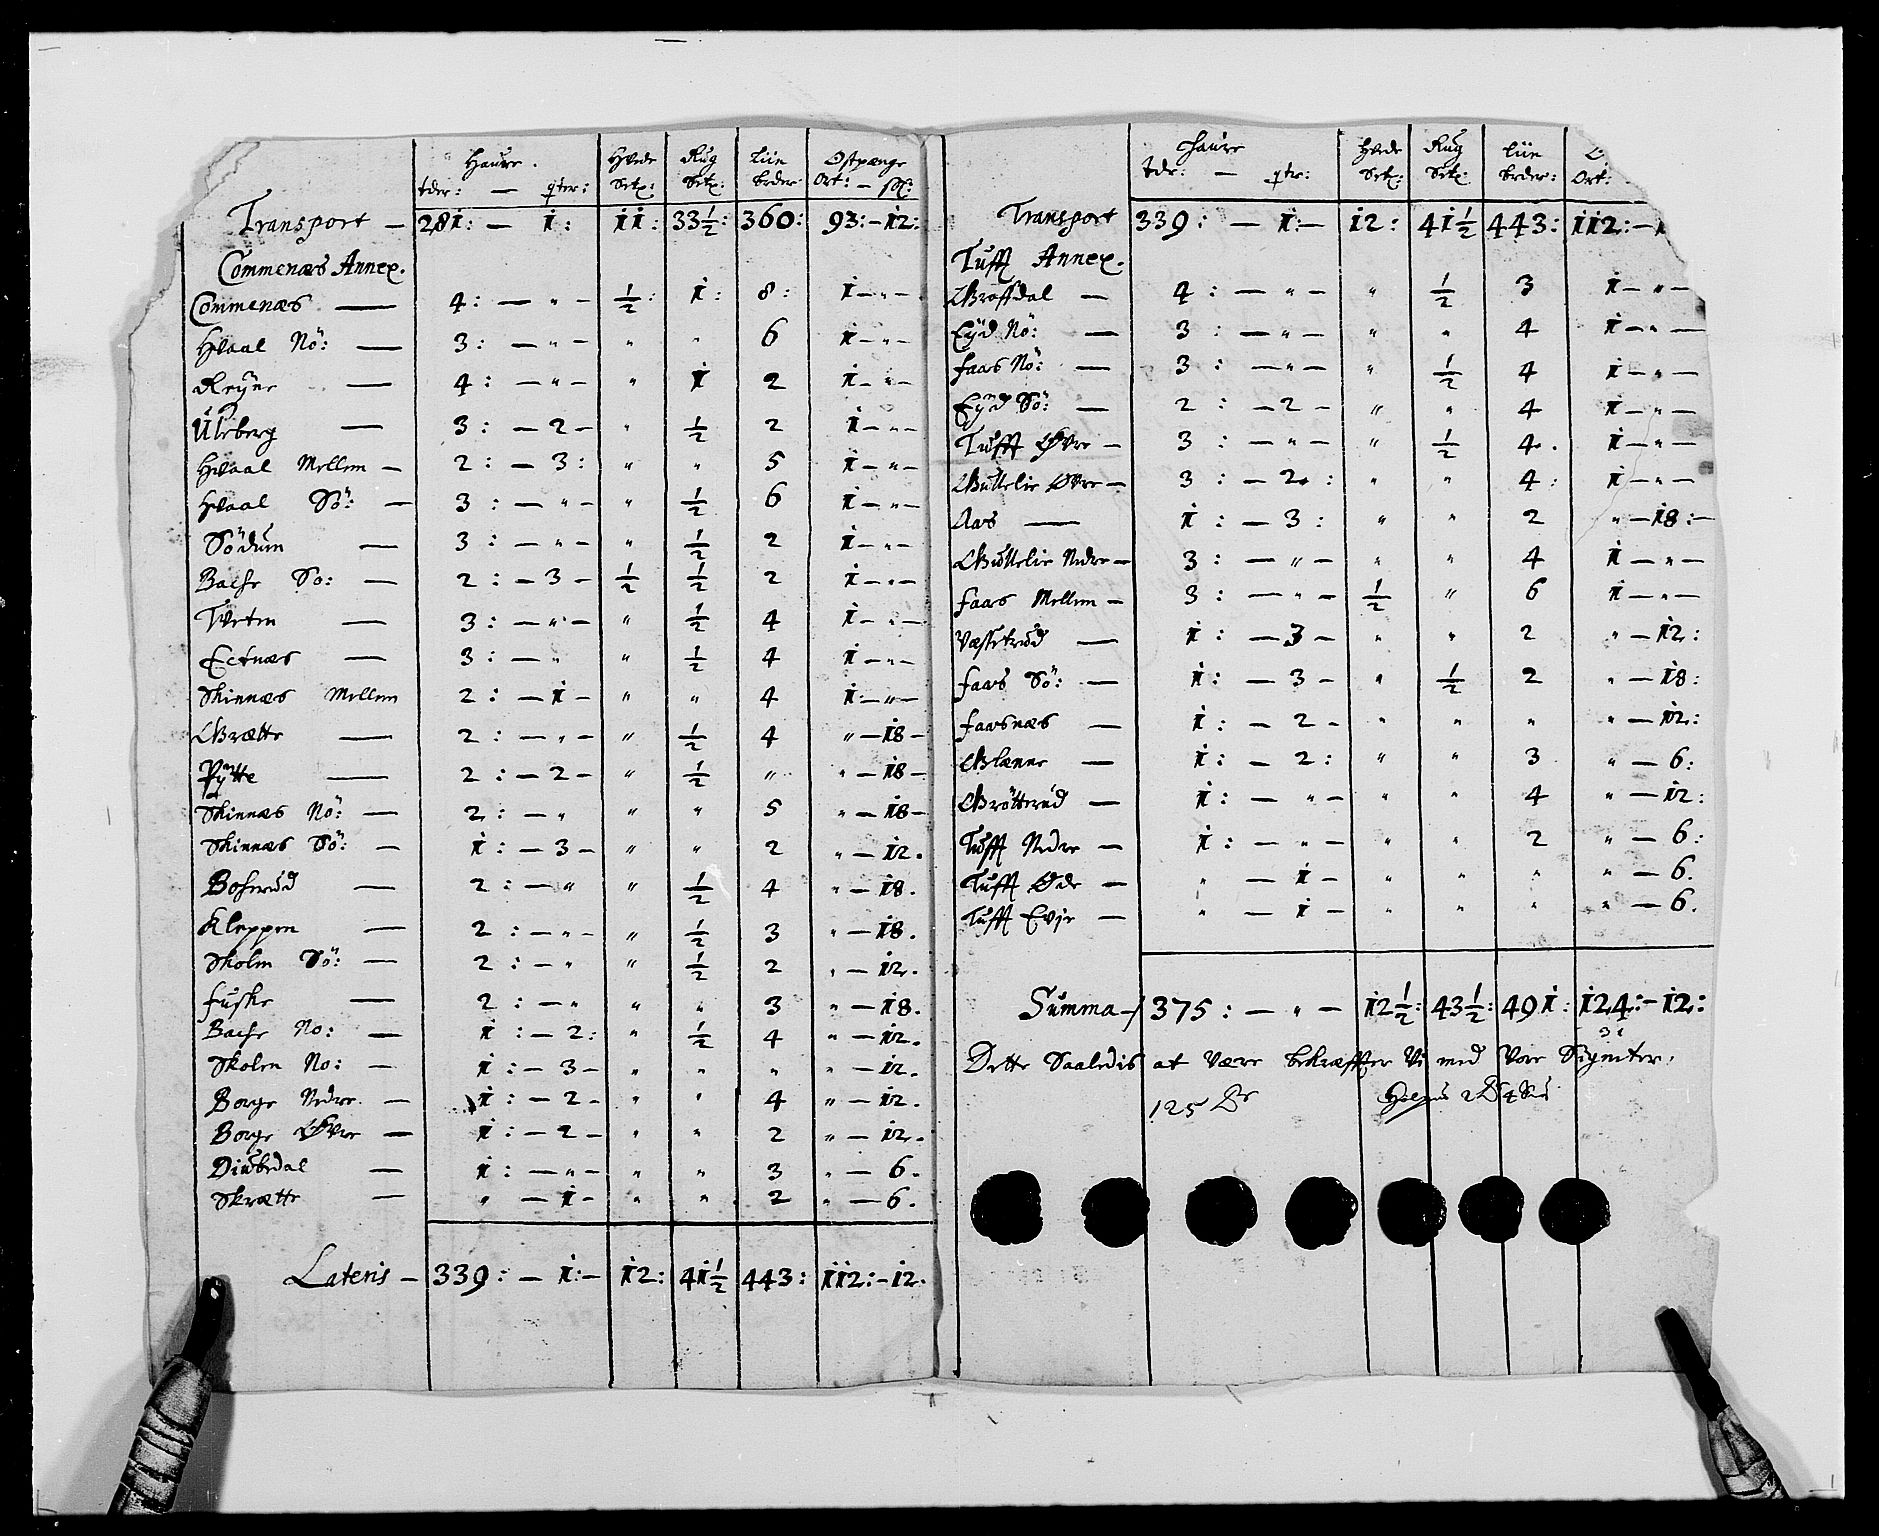 Haure. Hvede Rug Liin Ostpænge
tdr: — qter: Setz: Setz: brder Ort: — sk:
Transport — 281: — 1: 11: 33½: 360: 93: — 12:
Commenæs Annex.
Commenæs — 4: — " — ½: 1: 8: 1 — " —
Hvaal Nö: — 3: — " — " " 6 1 — " —
Reyne — 4: — " — " 1 2 1 — " —
Uleberg — 3: — 2 — " ½ 2 1 — " —
Hvaal Mellem — 2: — 3: " " 5 1 — " —
Hvaal Sö: — 3: — " — " ½ 6 1 — " —
Södum — 3: — " — " ½ 2 1 — " —
Bache So: — 2: — 3 — ½ ½ 2 1 — " —
Tveten — 3: — " — " ½ 4 1 — " —
Ecknæs — 3: — " " ½ 4 1 — " —
Skinnæs Mellem 2: — 1 — " " 4 1 — " —
Grætte — 2: — " — " ½ 4 " — 18 —
Pytte — 2: — 2 — " ½ " " — 18 —
Skinnæs Nö: — 2: — " " " 5 " — 18 —
Skinnæs Sö: — 1: — 3 — " " 2 " — 12.
Boserud — 2: — " " ½ 4 " — 18.
Kleppen — 2: — " — " ½ 3 " — 18.
Skolen Sö: — 2: — " " ½ 2 " — 12.
Fuske — 2: — " " " 3 " — 18.
Bache No: — 1: — 2: " ½ 4 " — 12.
Skolen No: — 1: — 3 — " " " " — 12.
Borge Nedre — 1: — 2 — " " 4 " — 12.
Borge Øvre — 1: — 2 — " " 2 " — 12.
Diubedal — 1: — " — " " 3 " — 6.
Skrætte — " — 1 — " " 2 " — 6.
Lateris — 339: — 1: — 12: 41½ 443: 112: — 12.
Haure Hvede Rug Liin
tdr: — qtr: Setz: Setz: brder: Ort:
Transport 339: — 1: — 12: 41½ 443: 112: —
Tufft Annex.
Groffdal — 4: — " — " ½ 3 1 — " —
Eyd Nö: — 3: — " — " " 4 1 — " —
Faas Nö: — 3: — " — " ½ 4 1 — " —
Eyd Sö: — 2: — 2 — " " 4 1 — " —
Tufft Øvre — 3: — " — " ½ 4. 1 — " —
Guttelie Øvre — 3: — 2: " " 4: 1 — " —
Aas — 1: — 3: " " 2 " — 18: —
Guttelie Nedre — 3: — " — " " 4 1 — " —
Faas Mellem — 3: — " — ½ " 6 1 — " —
Væsetrud — 1: — 3 — " " 2 " — 12:
Faas Sö: — 1: — 3 — " ½ 2 " — 18:
Faasnæs — 1: — 2 — " " " " — 12:
Glænne — 1: — 2: " " 3 " — 6:
Grötterud — 1: — " — " " 4 " — 12:
Tufft Nedre — 1: — " — " " 2 " — 6:
Tufft Øde — " — 1 — " " " " — 6.
Tufft Evje — " — 1 — " " " " — 6.
Summa — 375: — " — 12½: 43½: 491: 124: — 12:
Dette Saaledis at være bekræffter Vi med Vore Signeter.
125